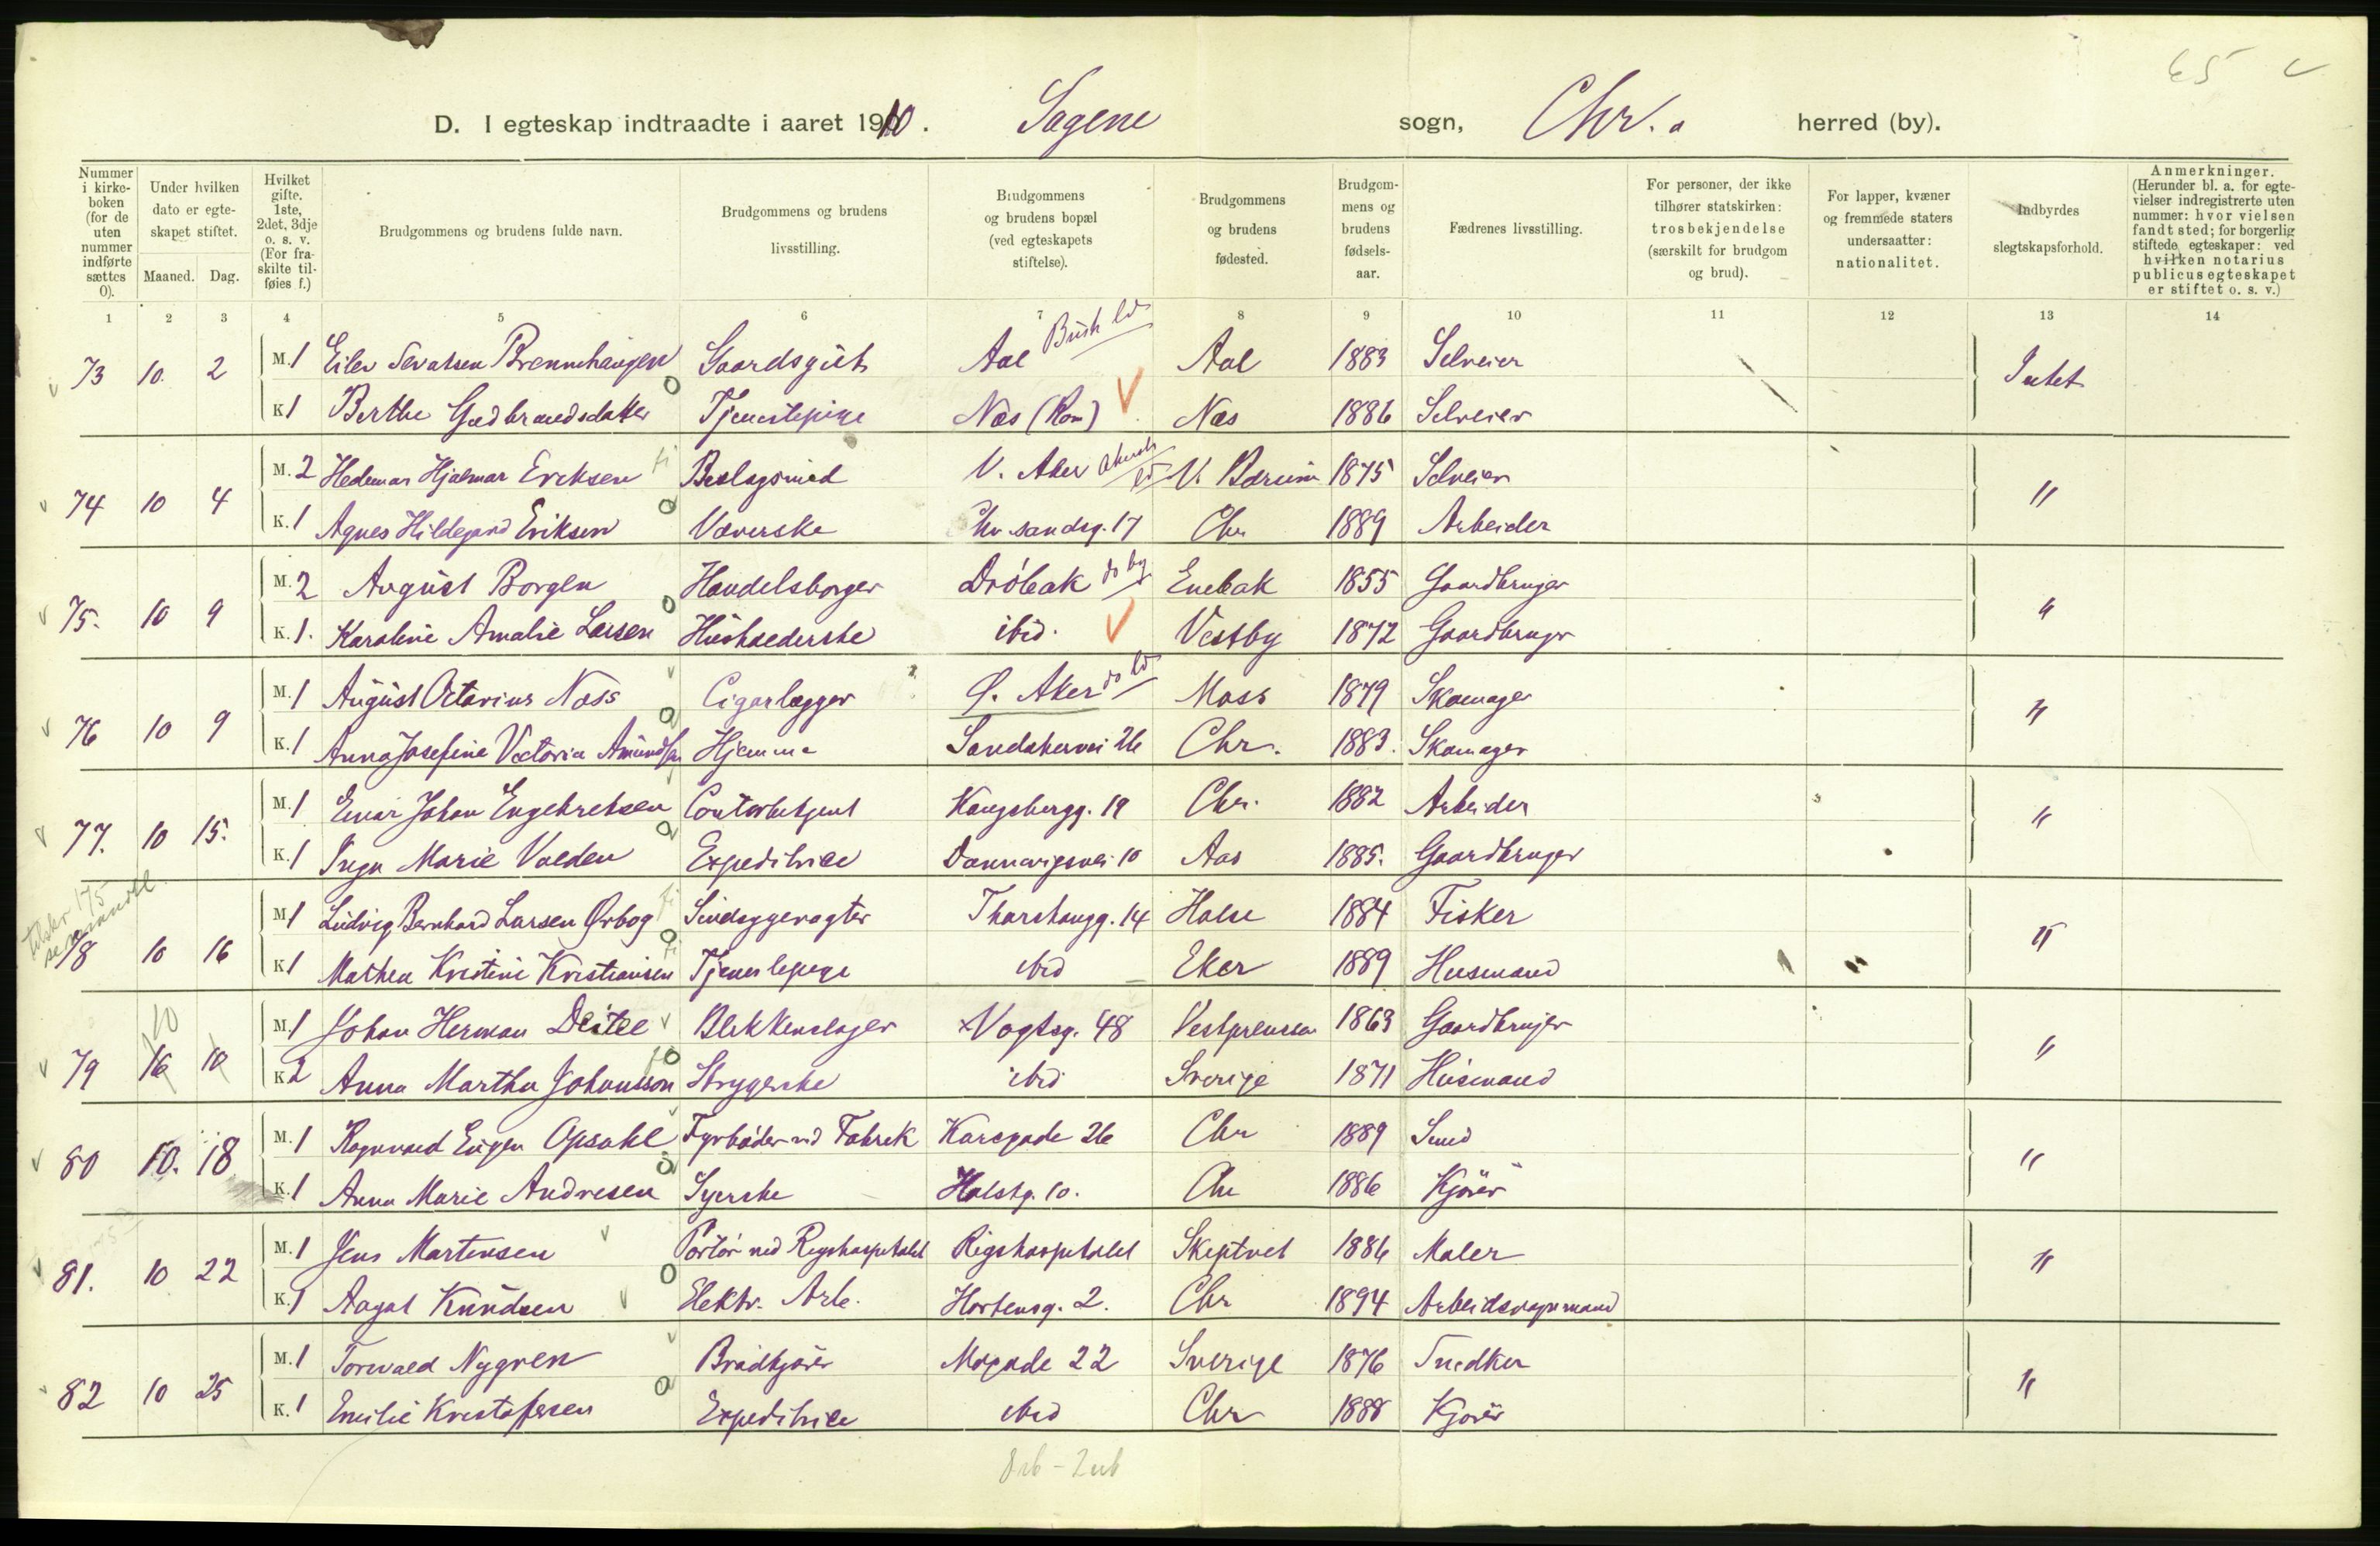 65 v
D. I egteskap indtraadte i aaret 1910. Sagene sogn, Chr.a herred (by).
Nummer i kirke-boken (for de uten nummer indførte sættes 0). Under hvilken dato er egte-skapet stiftet. Maaned. Dag. Hvilket gifte. 1ste, 2det, 3dje o. s. v. (For fra-skilte til-føies f.) Brudgommens og brudens fulde navn. Brudgommens og brudens livsstilling. Brudgommens og brudens bopæl (ved egteskapets stiftelse). Brudgommens og brudens fødested. Brudgom-mens og brudens fødsels-aar. Fædrenes livsstilling. For personer, der ikke tilhører statskirken: trosbekjendelse (særskilt for brudgom og brud). For lapper, kvæner og fremmede staters undersaatter: nationalitet. Indbyrdes slegtskapsforhold. Anmerkninger. (Herunder bl. a. for egte-vielser indregistrerte uten nummer: hvor vielsen fandt sted; for borgerlig stiftede egteskaper: ved hvilken notarius publicus egteskapet er stiftet o. s. v.)
1 2 3 4 5 6 7 8 9 10 11 12 13 14
73 10. 2 M. 1 Eilev Sevatsen Brennhaugen Gaardsgut Aal Busk ld Aal 1883 Selveier Intet
K 1 Berthe Gudbrandsdatter Tjenestepige Nes (Rom) Nes 1886 Selveier
74 10 4 M. 2 Hedemar Hjalmar Eriksen Beslagsmed V. Aker Akersh ld V. Bærum 1875 Selveier "
K. 1 Agnes Hildegard Eriksen Væverske Chr sandsg. 17 Chr 1889 Arbeider
75. 10 9 M. 2 August Borgen Handelsborger Drøbak do by Enebak 1855 Gaardbruger "
K. 1. Karoline Amalie Larsen Husholderske ibid. Vestby 1872 Gaardbruger
76 10 9 M. 1 August Octavius Næss Cigarlægger Ø. Aker do ld Moss 1879 Skomager "
K. 1 Anna Josefine Victoria Amundsen Hjemme Sandakervei 26 Chr. 1883. Skomager
77. 10 15. M. 1 Einar Johan Engebretsen Contorbetjent Kongsbergg. 19 Chr. 1882 Arbeider "
K. 1 Inga Marie Volden Expeditrice Dannevigsvei 10 Aas 1885. Gaardbruger
78 10 16 M 1 Ludvig Bernhard Larsen Ørbog Sindsygevogter Thorshaugg. 14 Halse 1884 Fisker "
K 1 Mathea Kristine Kristiansen Tjenestepige ibid Eker 1889 Husmand
79 16 10 M. 1 Johan Herman Deitel Blikkenslager Vogtsg. 48 Vestpreussen 1863 Gaardbruger "
K 2 Anna Martha Johansson Strygerske ibid Sverige 1871 Husmand
80 10. 18 M. 1 Ragnvald Eugen Opsahl Fyrbøder ved Fabrik Karegade 26 Chr 1889 Smed "
K. 1 Anna Marie Andresen Syerske Holstg. 10. Chr 1886 Kjører
81. 10 22 M. 1 Jens Martinsen Portør ved Rigshospitalet Rigshospitalet Skiptvet 1886 Maler "
K. 1 Aagot Knudsen Elektr. Arb. Hortensg. 2. Chr 1894 Arbeidsvognmand
82 10 25 M. 1 Torvald Nygren Brødkjører Mogade 22 Sverige 1876 Snedker "
K. 1 Emilie Kristofersen Expeditrice ibid Chr 1888 Kjører
8 ub - 2 ub